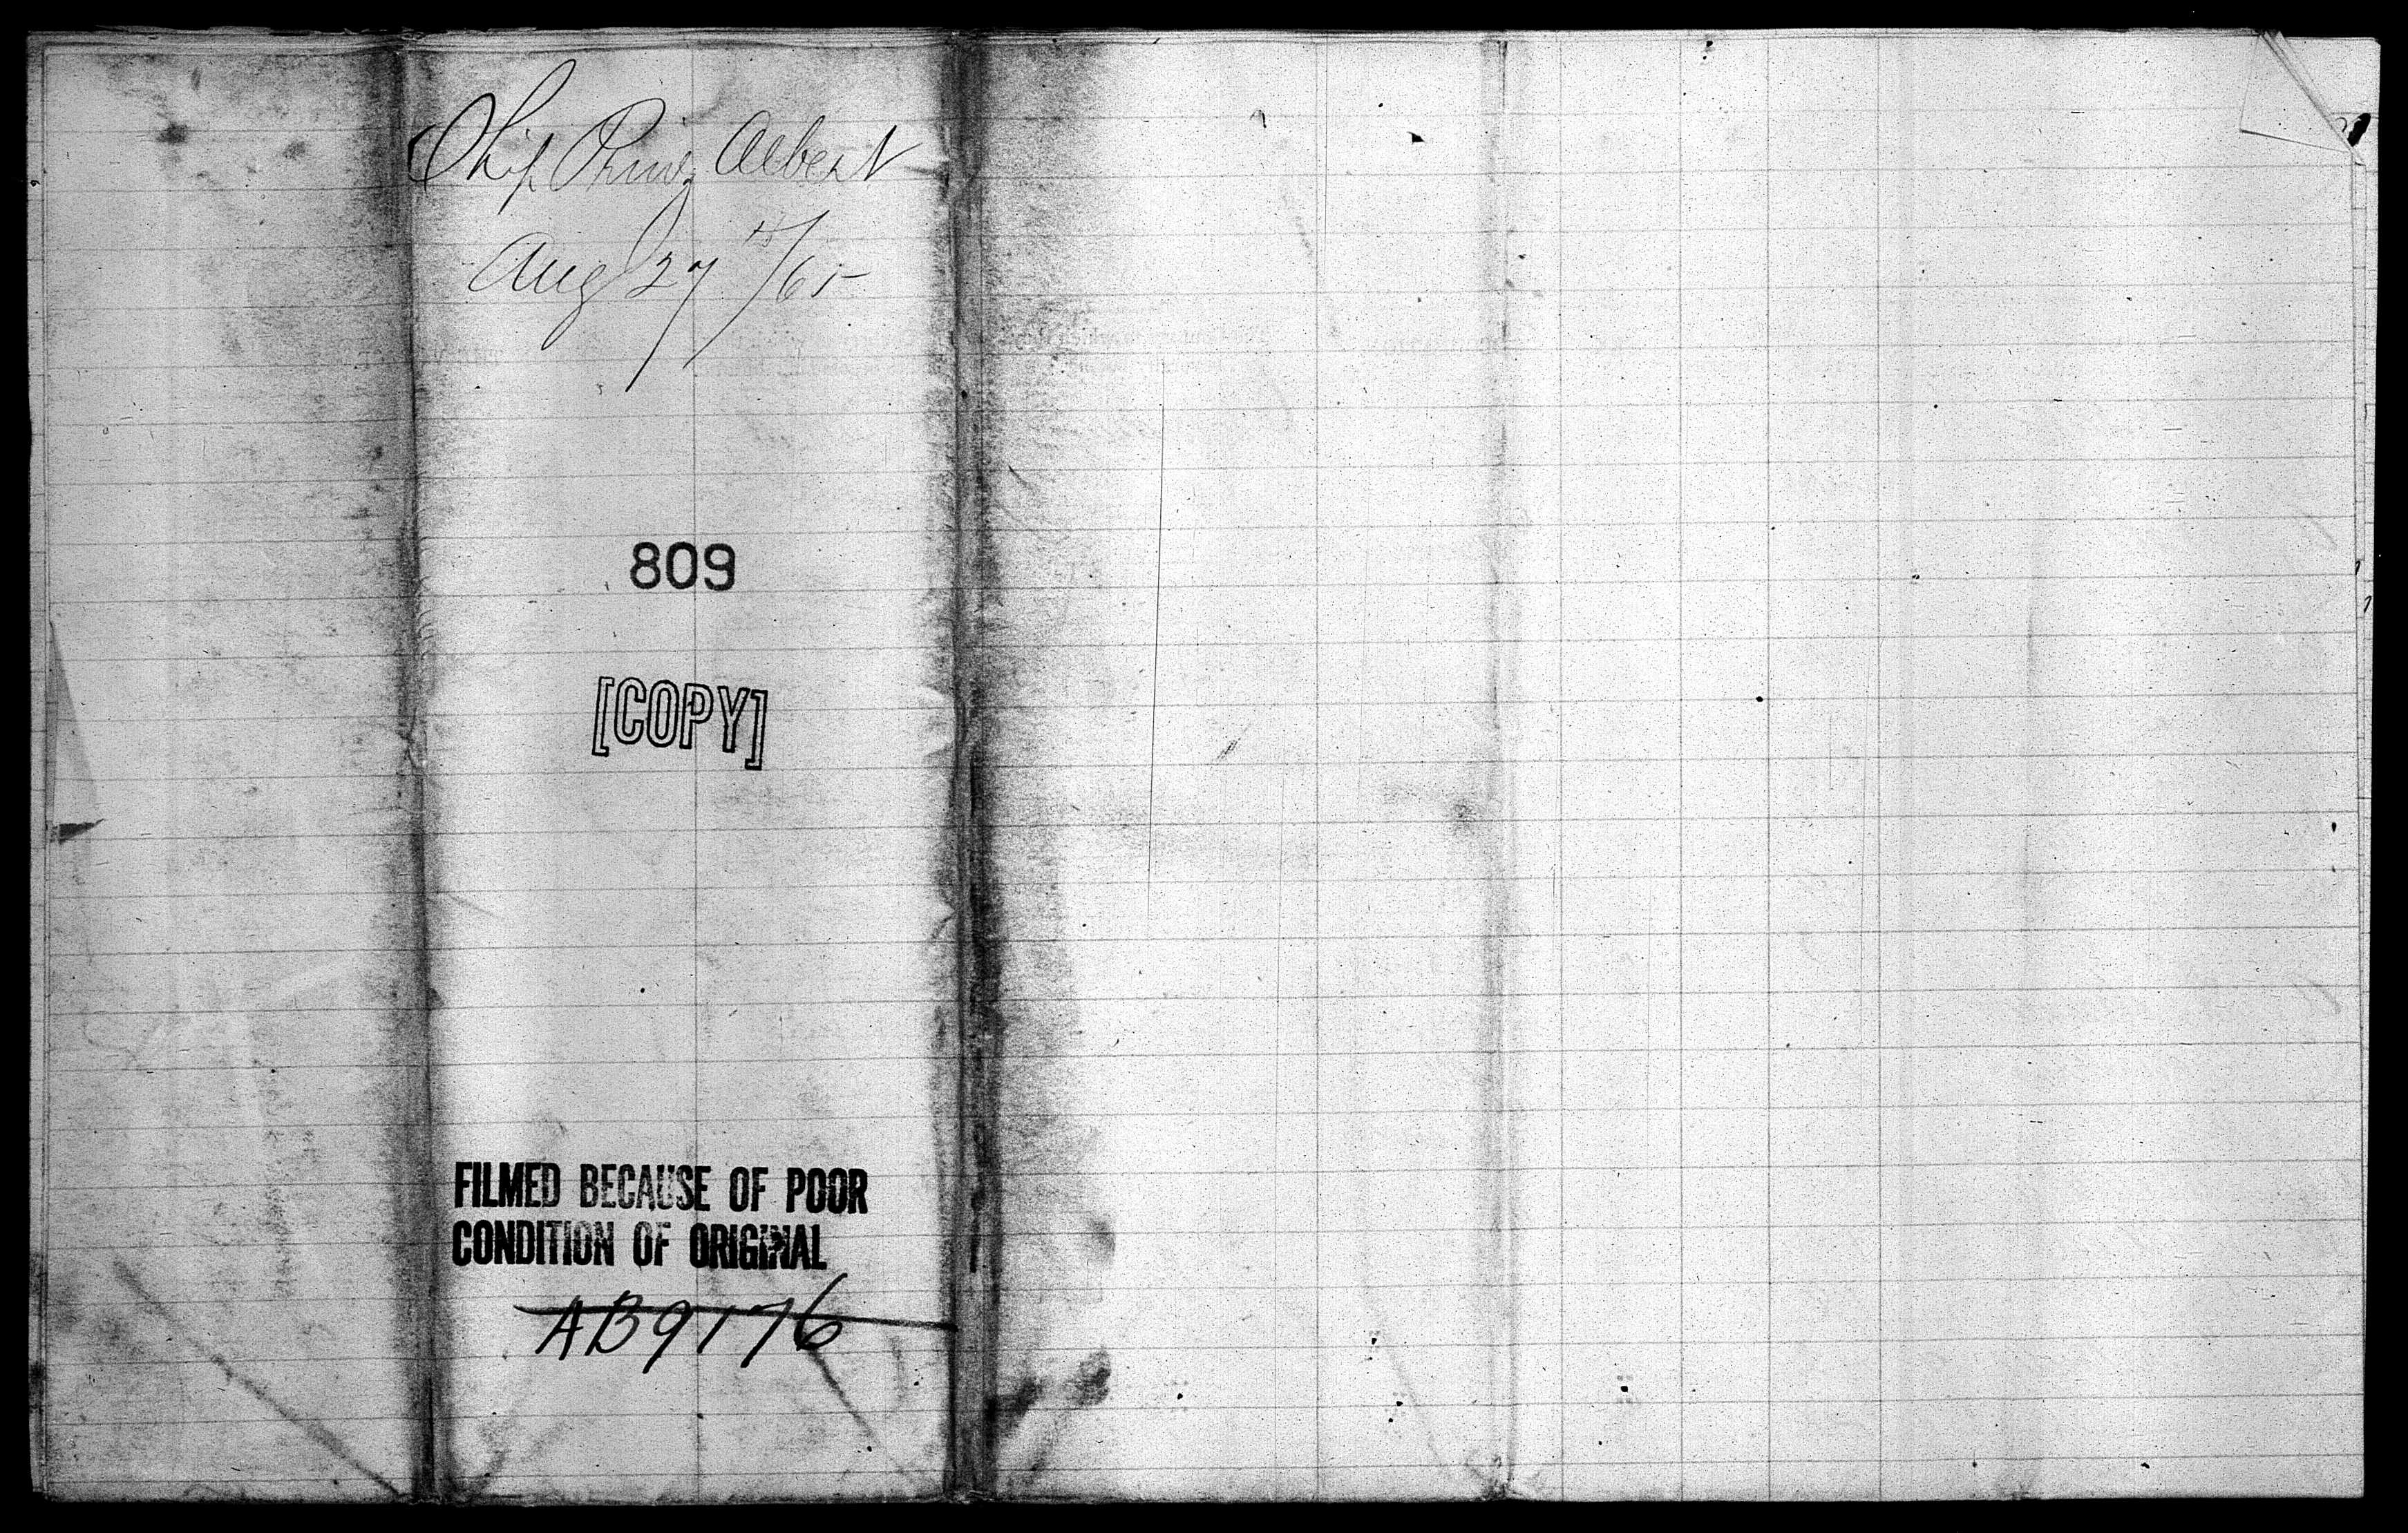 Ship Prinz Albert
Aug 27th/65
809
[COPY]
FILMED BECAUSE OF POOR
CONDITION OF ORIGINAL
AB9176